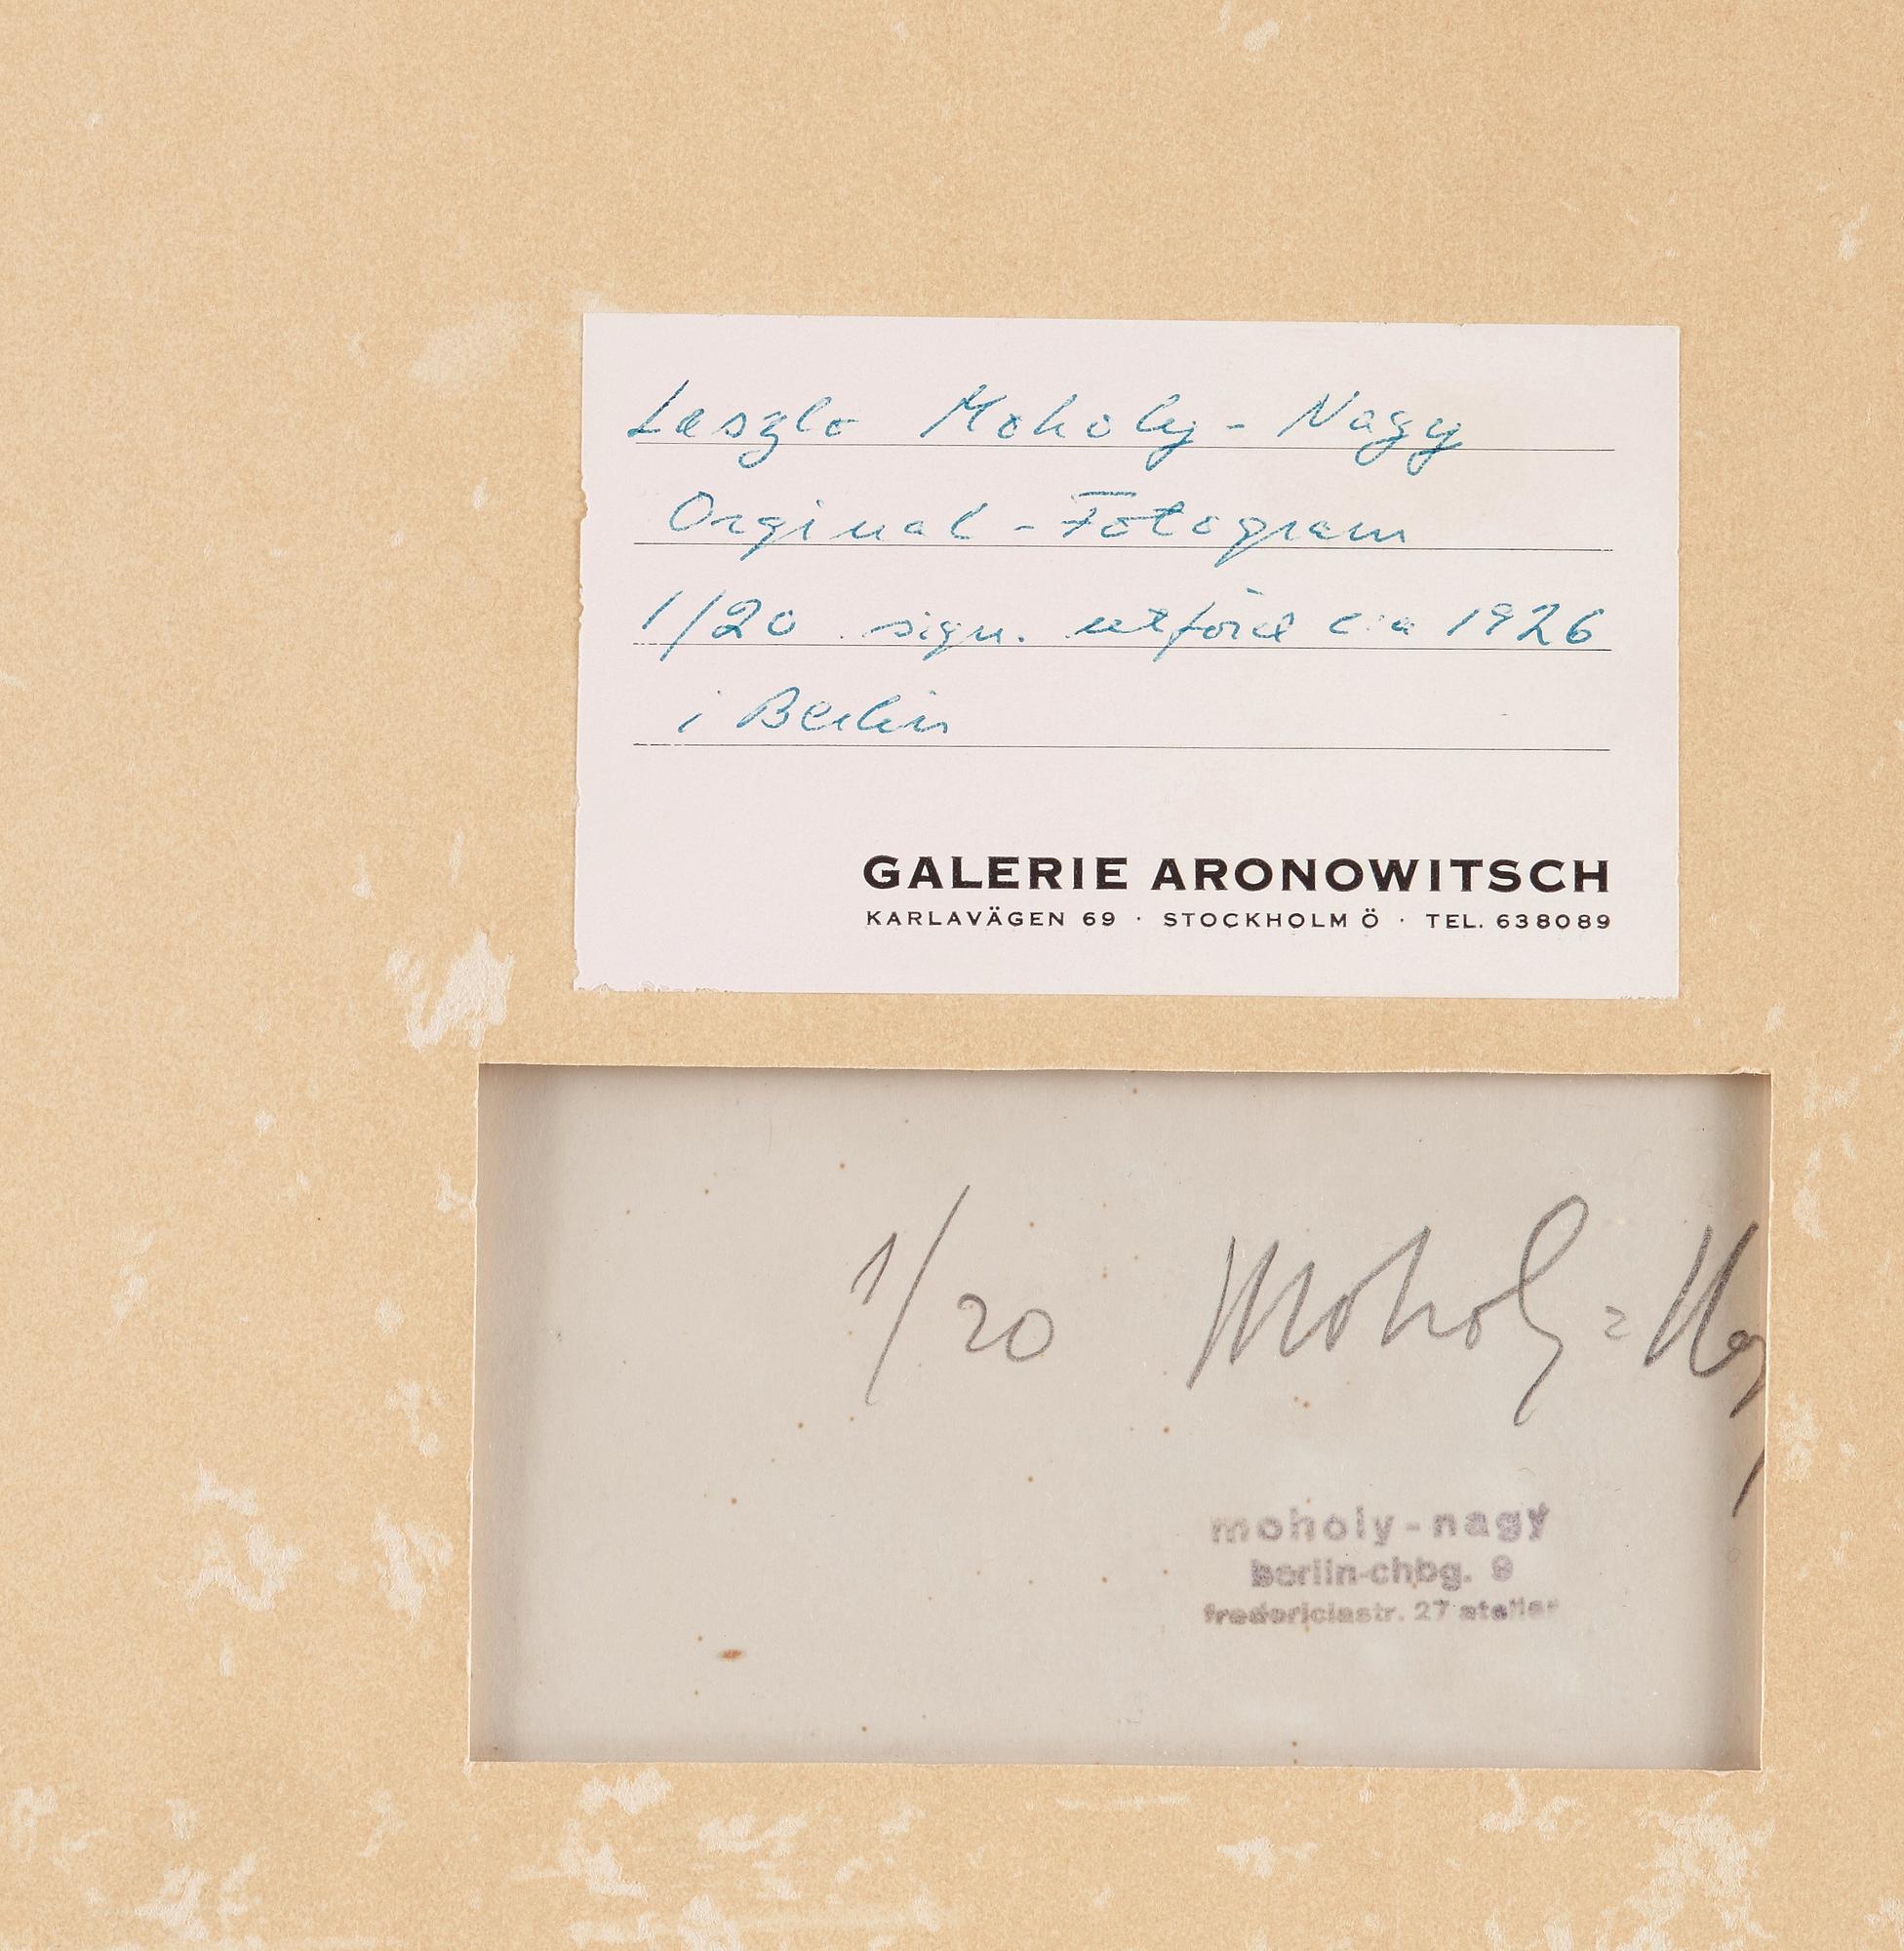 Laszlo Moholy - Nagy
Orginal - Fotogram
1/20 sign. utförd ca 1926
i Berlin
GALERIE ARONOWITSCH
KARLAVÄGEN 69 · STOCKHOLM Ö · TEL. 638089
1/20 Moholy = Nagy
moholy-nagy
berlin-chbg. 9
fredericiastr. 27 atelier